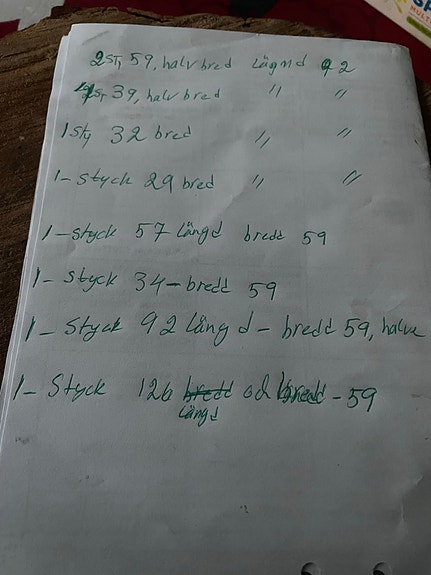 2st, 59, halv bred Längd 92
st, 39, halv bred " "
1 st, 32 bred " "
1 - styck 29 bred " "
1 - styck 57 längd bredd 59
1 - styck 34 - bredd 59
1 - styck 92 läng d - bredd 59, halv
1 - styck 126 bredd och bredd - 59
längd